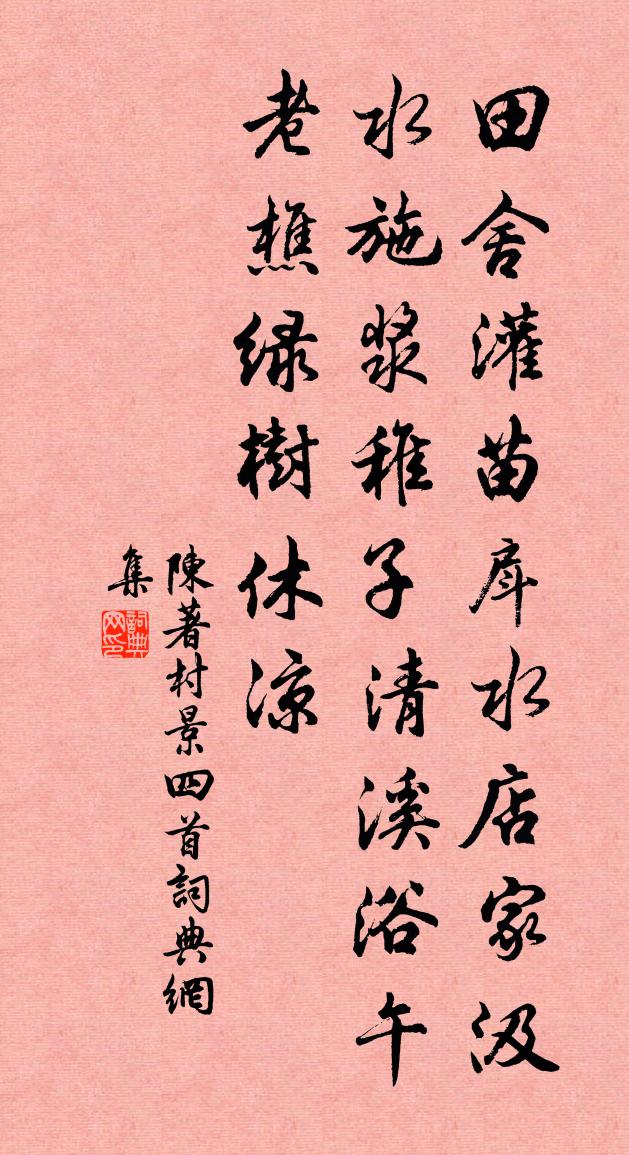 田舍灌苗戽水店家汲
水施漿稚子清溪浴午
老樵綠樹休涼
陳著村景四首詞典網
集
詞典
网印